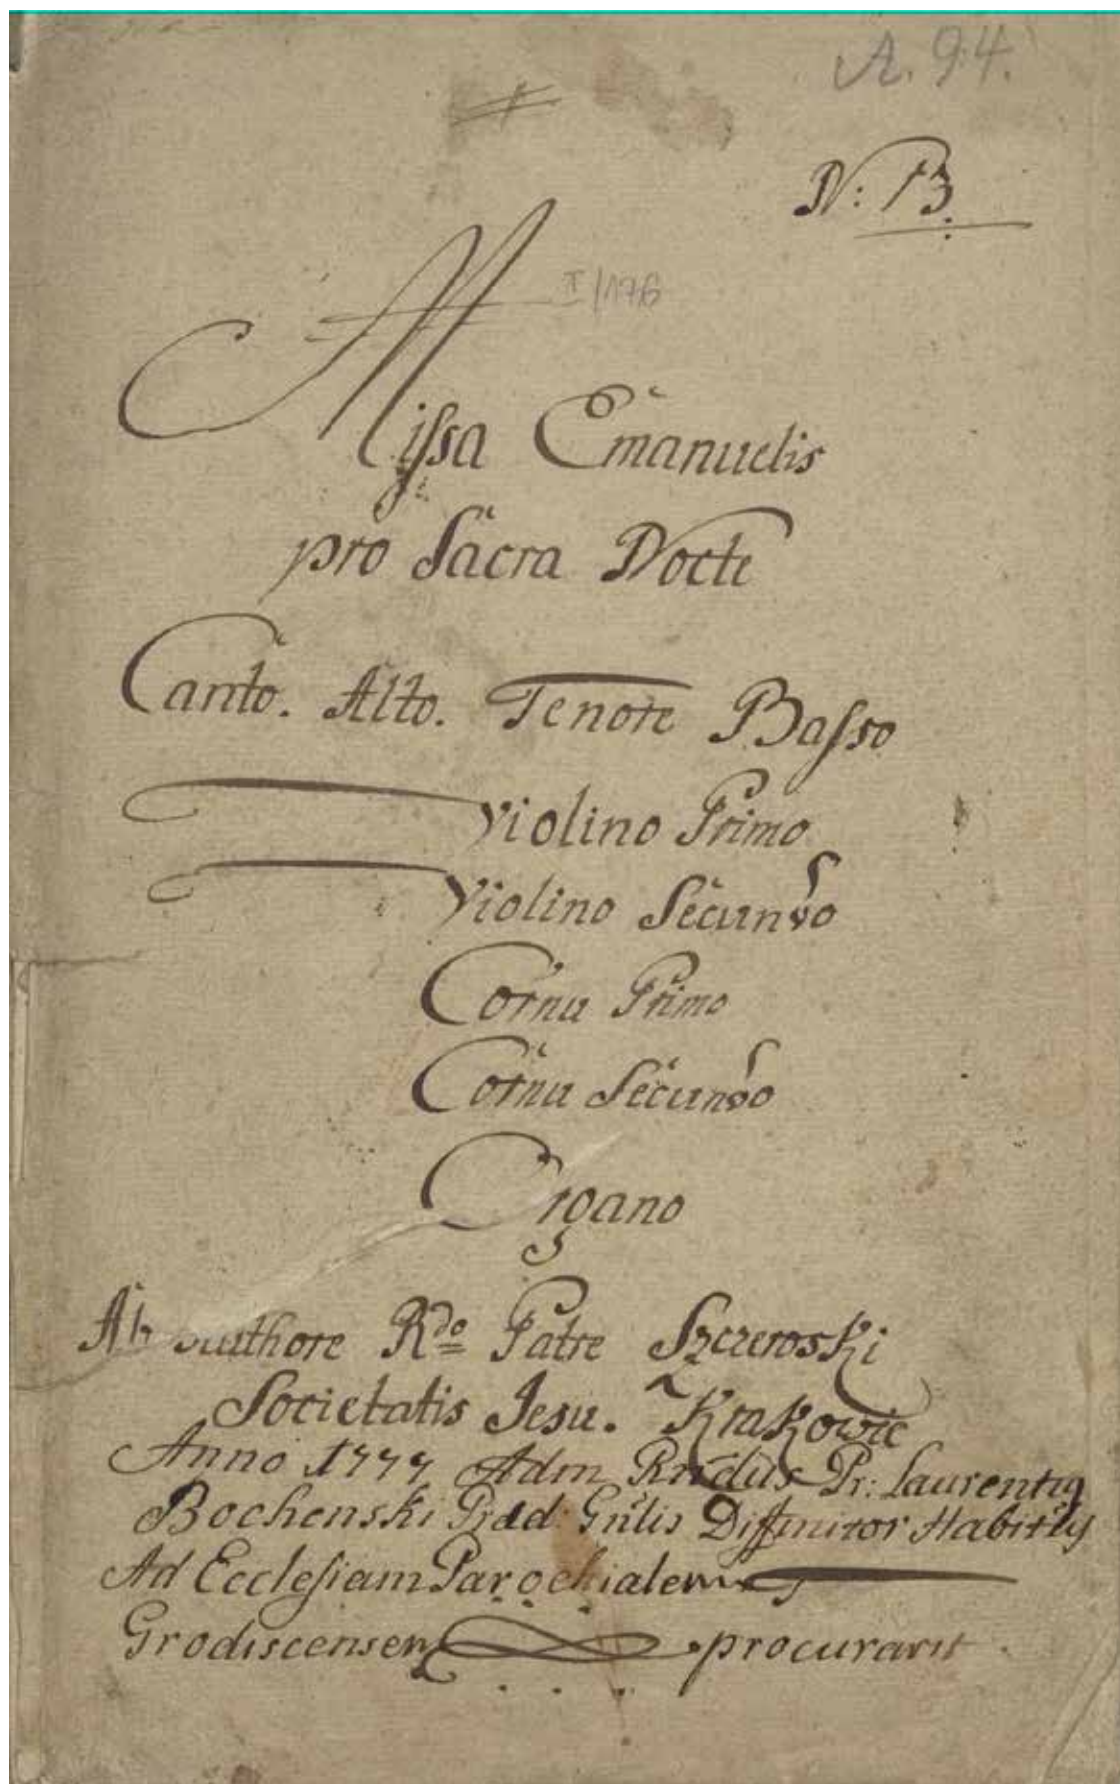 A. 94.
N: 13.
I/176
Missa Emanuelis
pro Sacra Nocte
Canto. Alto. Tenore Basso
Violino Primo
Violino Secundo
Cornu Primo
Cornu Secundo
Organo
Ab Authore Rdo Patre Szczeroski
Societatis Jesu. Krakowie
Anno 1777 Adm Rndus Pr: Laurentig
Bochenski Præd: Gnlis Diffinitor
Ad Ecclesiam Parochialem
Grodiscensem procuravit